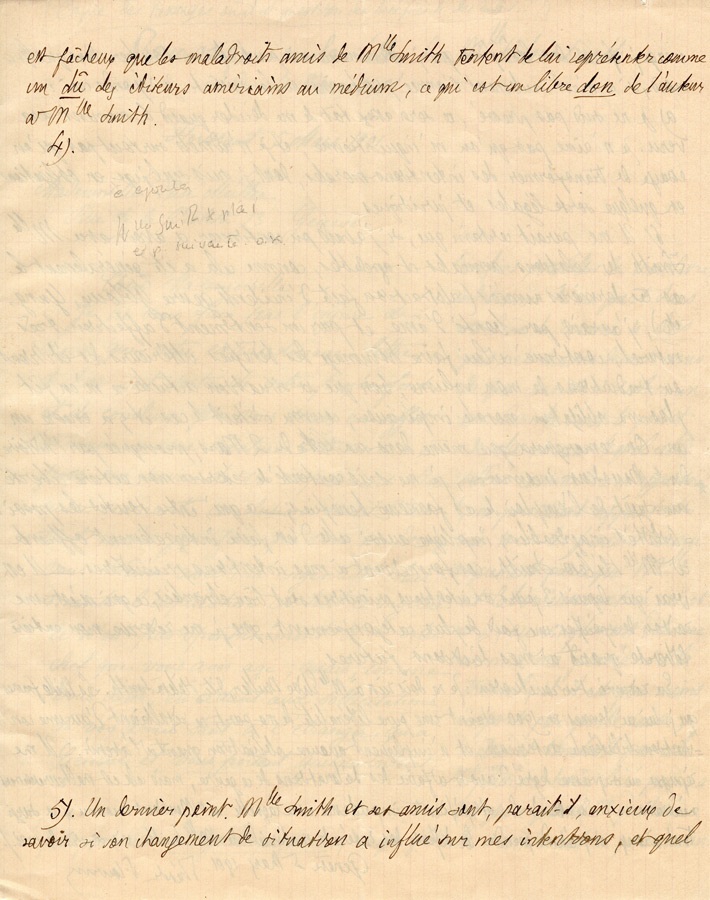 est fâcheux que les maladroits amis de Mlle Smith tentent de lui représenter comme
un dû des éditeurs américains au médium, ce qui est un libre don de l'auteur
à Mlle Smith.
4).
à ajouter
Mlle Smith
suivante
5). Un dernier point. Mlle Smith et ses amis sont, paraît-il, anxieux de
savoir si son changement de situation a influé sur mes intentions, et quel